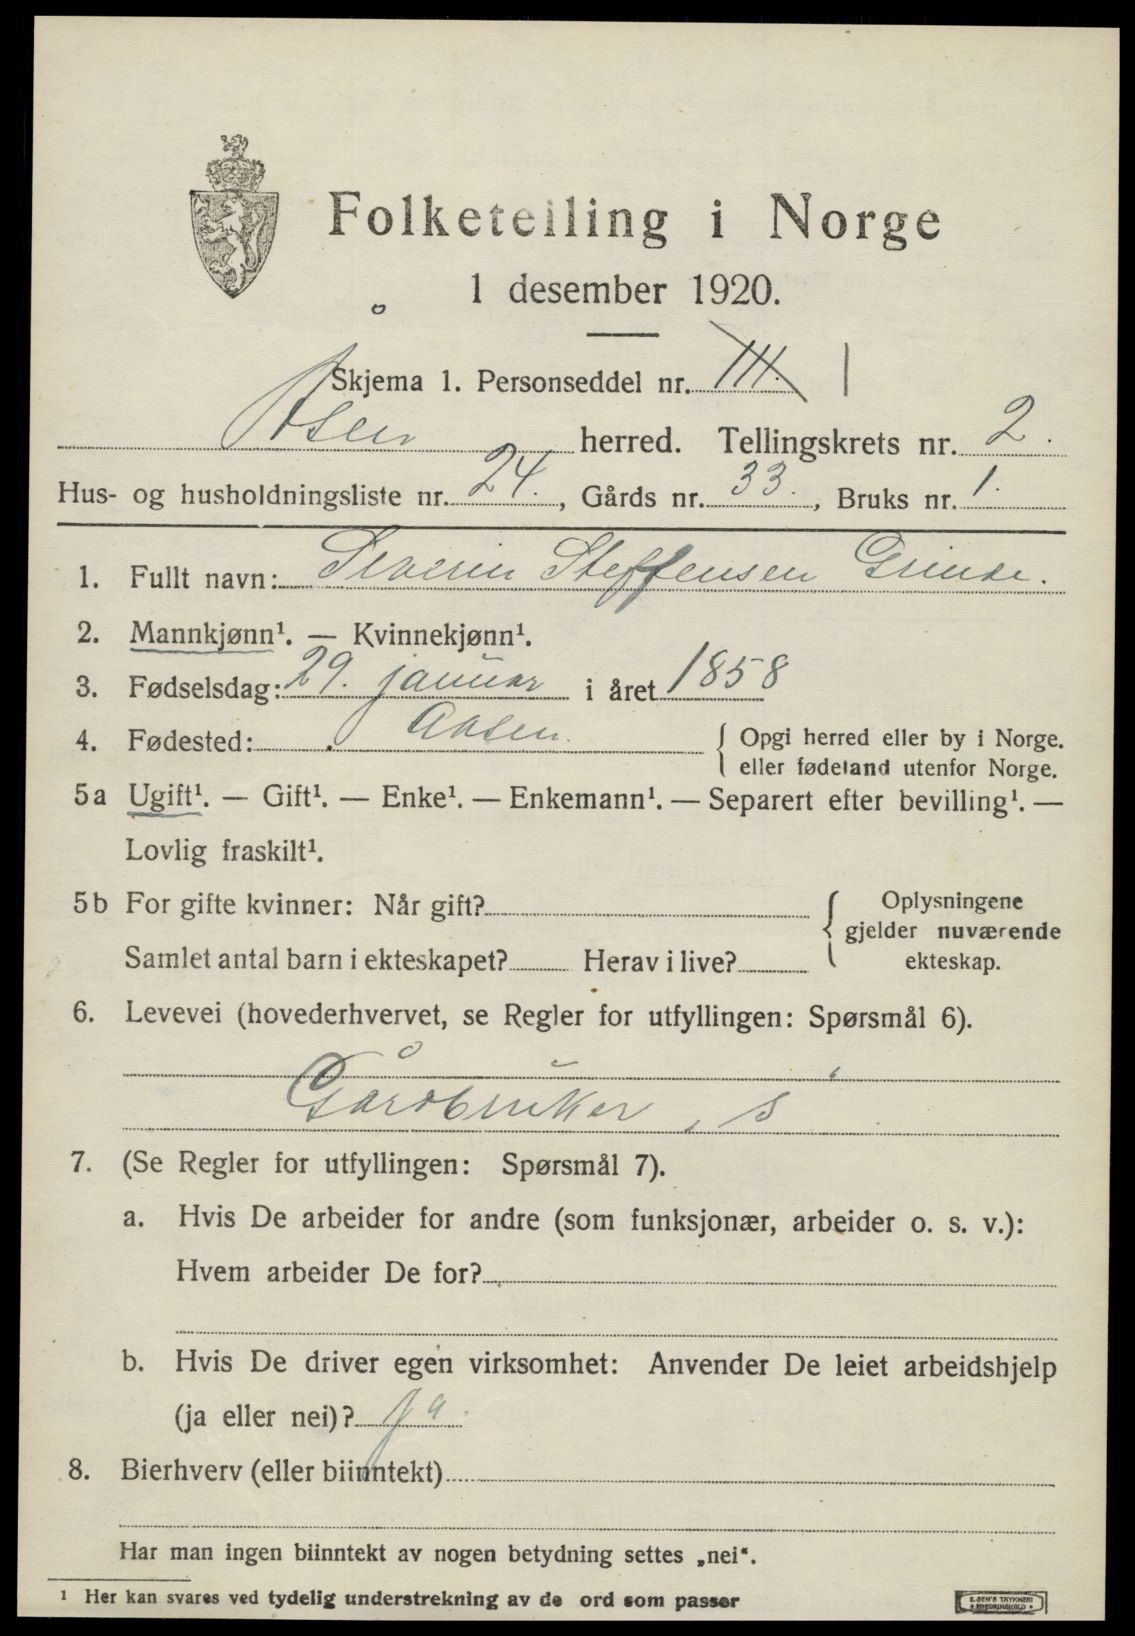 Folketelling i Norge
1 desember 1920.
Skjema 1. Personseddel nr. III. 1
Åsen herred. Tellingskrets nr. 2.
Hus- og husholdningsliste nr. 24., Gårds nr. 33., Bruks nr. 1.
1. Fullt navn: Severin Steffensen Grinde.
2. Mannkjønn¹. — Kvinnekjønn¹.
3. Fødselsdag: 29. januar i året 1858
4. Fødested: Aasen. { Opgi herred eller by i Norge.
eller fødeland utenfor Norge.
5a Ugift¹. — Gift¹. — Enke¹. — Enkemann¹. — Separert efter bevilling¹. —
Lovlig fraskilt¹.
5b For gifte kvinner: Når gift?
Samlet antal barn i ekteskapet? Herav i live?
{ Oplysningene
gjelder nuværende
ekteskap.
6. Levevei (hovederhvervet, se Regler for utfyllingen: Spørsmål 6).
Gårdbruker, s
7. (Se Regler for utfyllingen: Spørsmål 7).
a. Hvis De arbeider for andre (som funksjonær, arbeider o. s. v.):
Hvem arbeider De for?
b. Hvis De driver egen virksomhet: Anvender De leiet arbeidshjelp
(ja eller nei)? ja.
8. Bierhverv (eller biinntekt)
Har man ingen biinntekt av nogen betydning settes „nei“.
¹ Her kan svares ved tydelig understrekning av de ord som passer
E. SEM'S TRYKKERI
FREDRIKSHALD